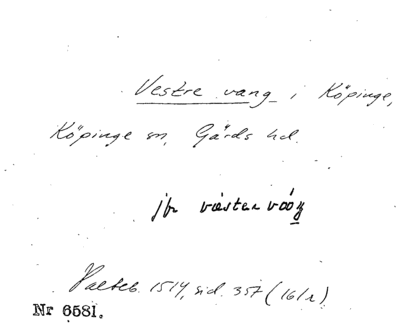 Vestre vang i Köpinge,
Köpinge sn, Gärds hd.
jfr väster
1514, sid. 357 (16/1)
Nr 6581.